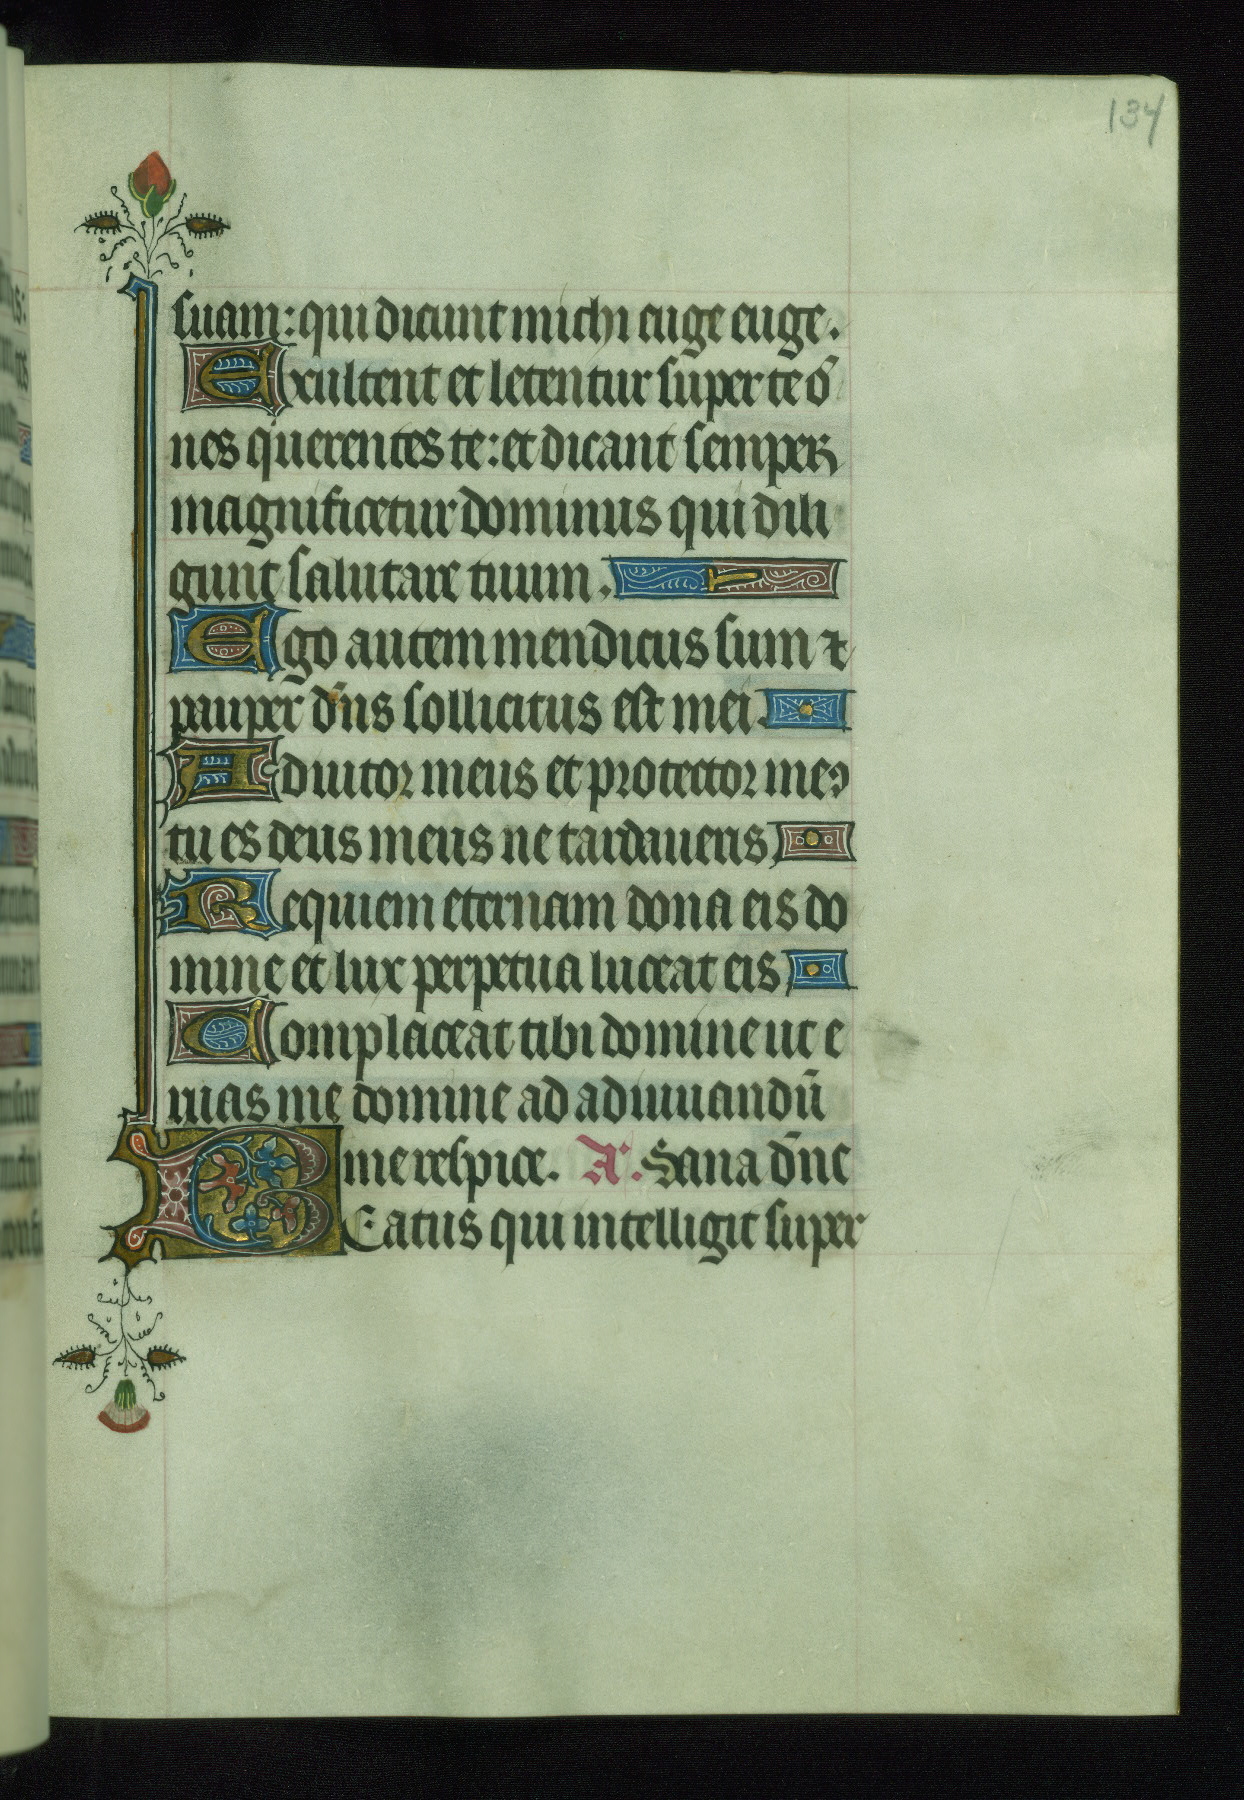 134
suam: qui dicunt michi euge euge.
Exultent et letentur super te õ
nes querentes te: et dicant semper
magnificetur dominus qui dili
gunt salutare tuum.
Ego autem mendicus sum ⁊
pauper dñs sollicitus est mei.
Adiutor meus et protector meꝰ
tu es deus meus ne tardaueris
Requiem eternam dona eis do
mine et lux perpetua luceat eis
Complaceat tibi domine ut e
ruas me domine ad adiuuandũ
me respice. Aʳ. Sana dñe
Beatus qui intelligit super